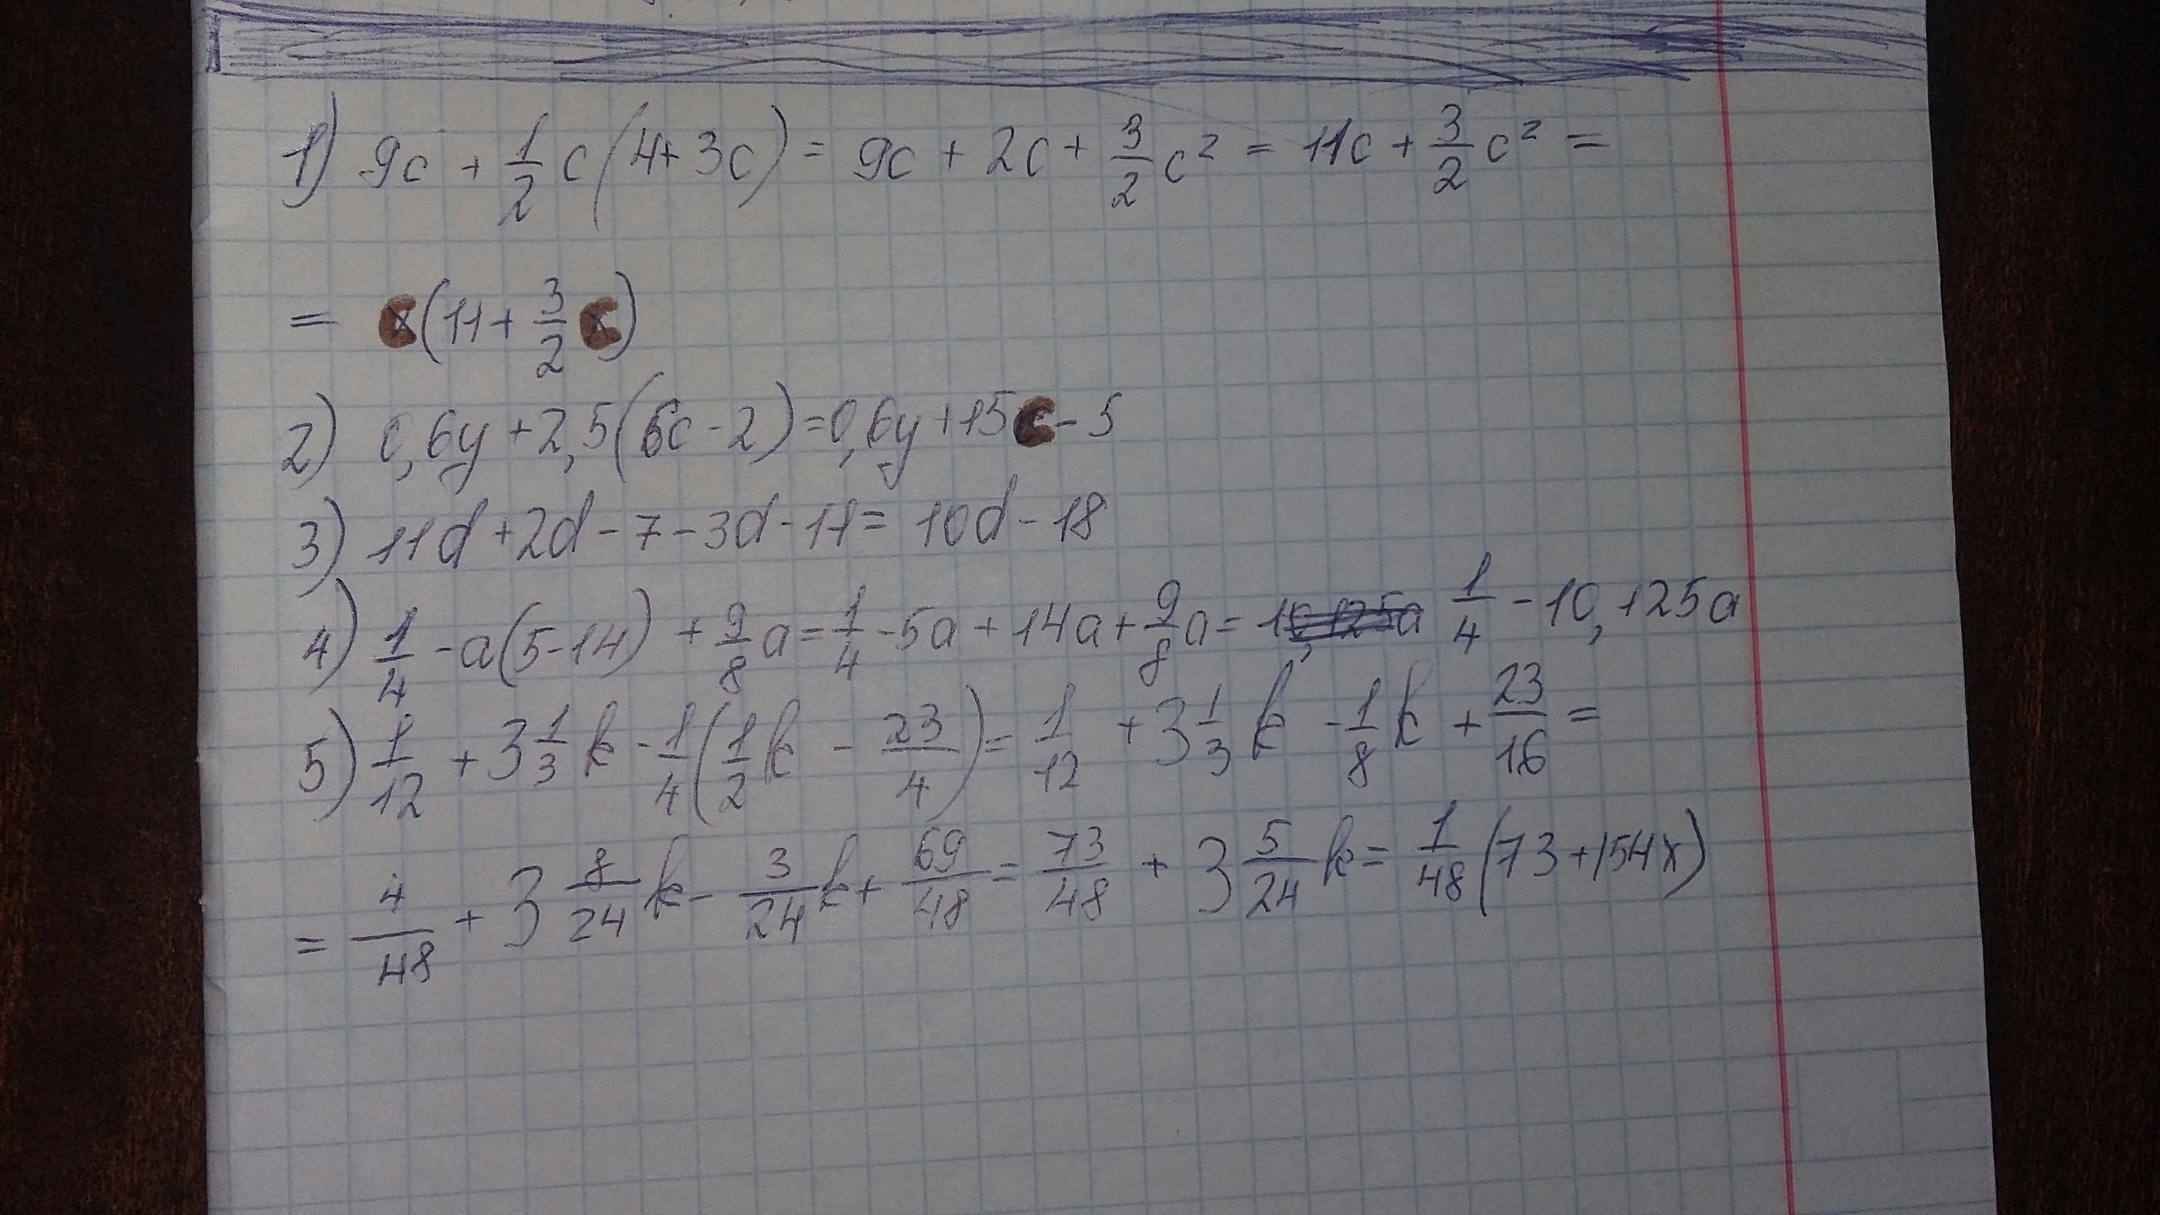 1) 9c + 1/2 c (4 + 3c) = 9c + 2c + 3/2 c² = 11c + 3/2 c² =
= c (11 + 3/2 c)
2) 0,6y + 2,5 (6c - 2) = 0,6y + 15c - 5
3) 11d + 2d - 7 - 3d - 11 = 10d - 18
4) 1/4 - a (5 - 14) + 9/8 a = 1/4 - 5a + 14a + 9/8 a = 1/4 - 10,125a
5) 1/12 + 3 1/3 k - 1/4 (1/2 k - 23/4) = 1/12 + 3 1/3 k - 1/8 k + 23/16 =
= 4/48 + 3 8/24 k - 3/24 k + 69/48 = 73/48 + 3 5/24 k = 1/48 (73 + 154x)